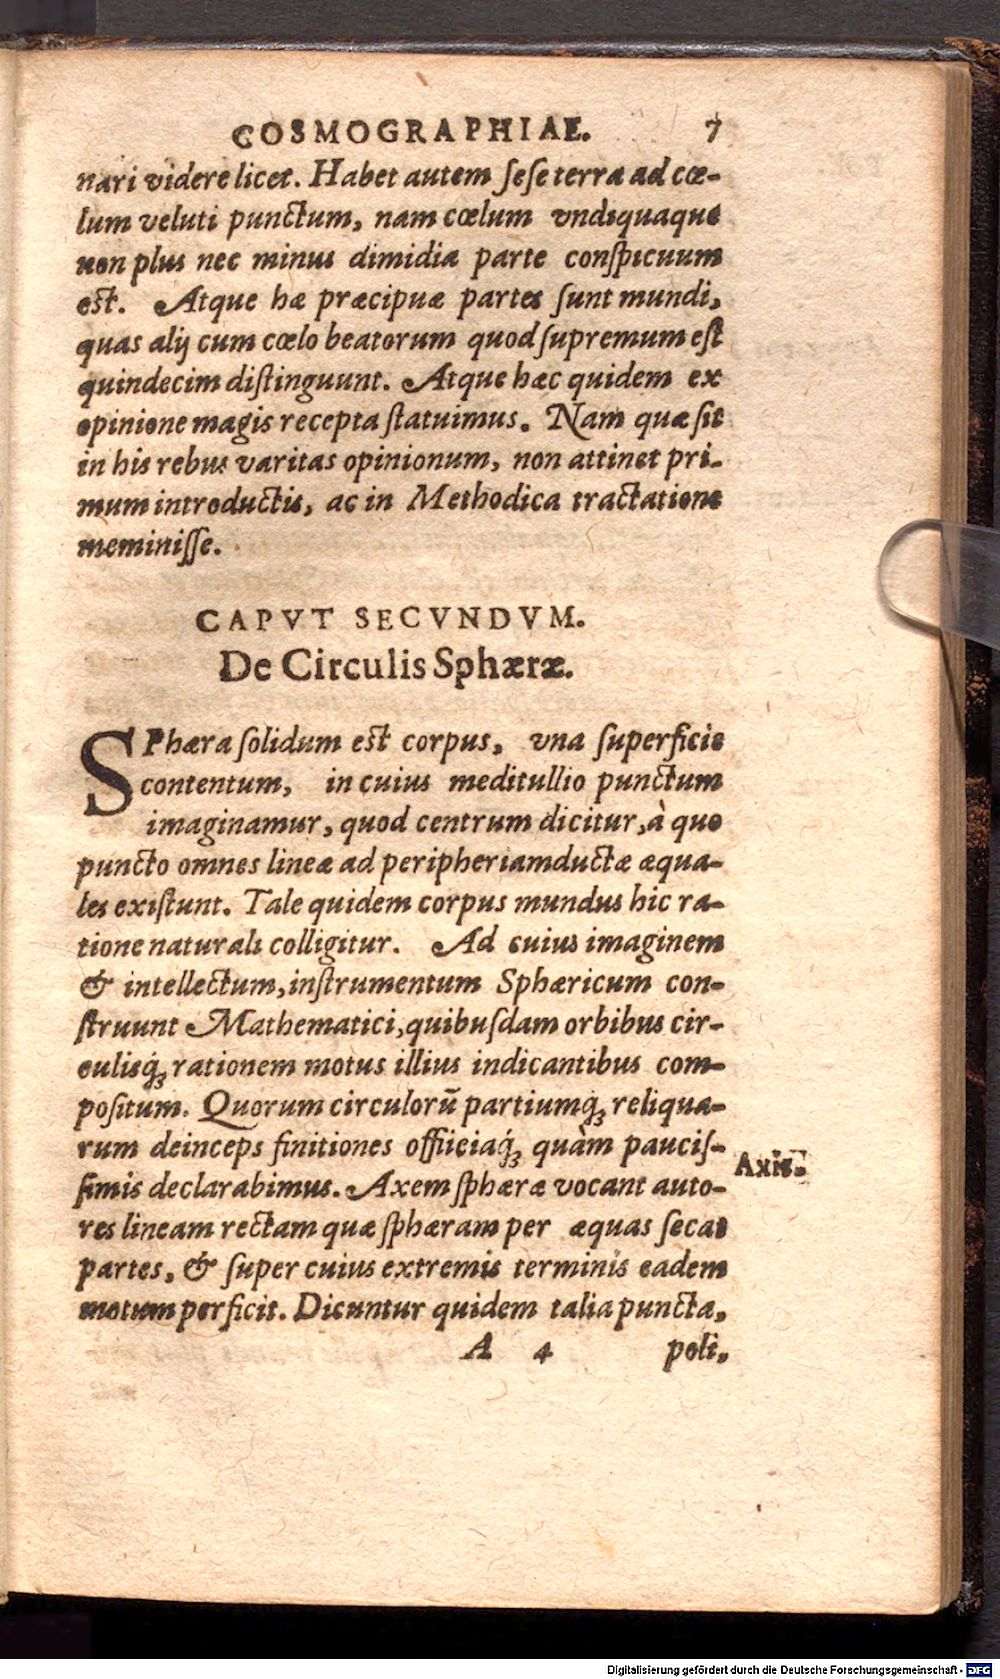 COSMOGRAPHIAE. 7
nari videre licet. Habet autem ſeſe terra ad cœ-
lum veluti punctum, nam cœlum vndiquaque
non plus nec minus dimidia parte conſpicuum
est. Atque hæ præcipuæ partes ſunt mundi,
quas alij cum cœlo beatorum quod ſupremum eſt
quindecim diſtinguunt. Atque hæc quidem ex
opinione magis recepta ſtatuimus. Nam quæ ſit
in his rebus varitas opinionum, non attinet pri-
mum introductis, ac in Methodica tractatione
meminiſſe.
CAPVT SECVNDVM.
De Circulis Sphæræ.
SPhæra ſolidum est corpus, vna ſuperficie
contentum, in cuius meditullio punctum
imaginamur, quod centrum dicitur, à quo
puncto omnes lineæ ad peripheriam ductæ æqua-
les exiſtunt. Tale quidem corpus mundus hic ra-
tione naturali colligitur. Ad cuius imaginem
& intellectum, inſtrumentum Sphæricum con-
ſtruunt Mathematici, quibuſdam orbibus cir-
culisq́ꝫ rationem motus illius indicantibus com-
poſitum. Quorum circulorū partiumq́ꝫ reliqua-
rum deinceps finitiones officiaq́ꝫ quàm pauciſ-
ſimis declarabimus. Axem ſphæræ vocant auto-
res lineam rectam quæ ſphæram per æquas ſecat
partes, & ſuper cuius extremis terminis eadem
motum perficit. Dicuntur quidem talia puncta,
A 4 poli,
Axis.
Digitalisierung gefördert durch die Deutsche Forschungsgemeinschaft - DFG